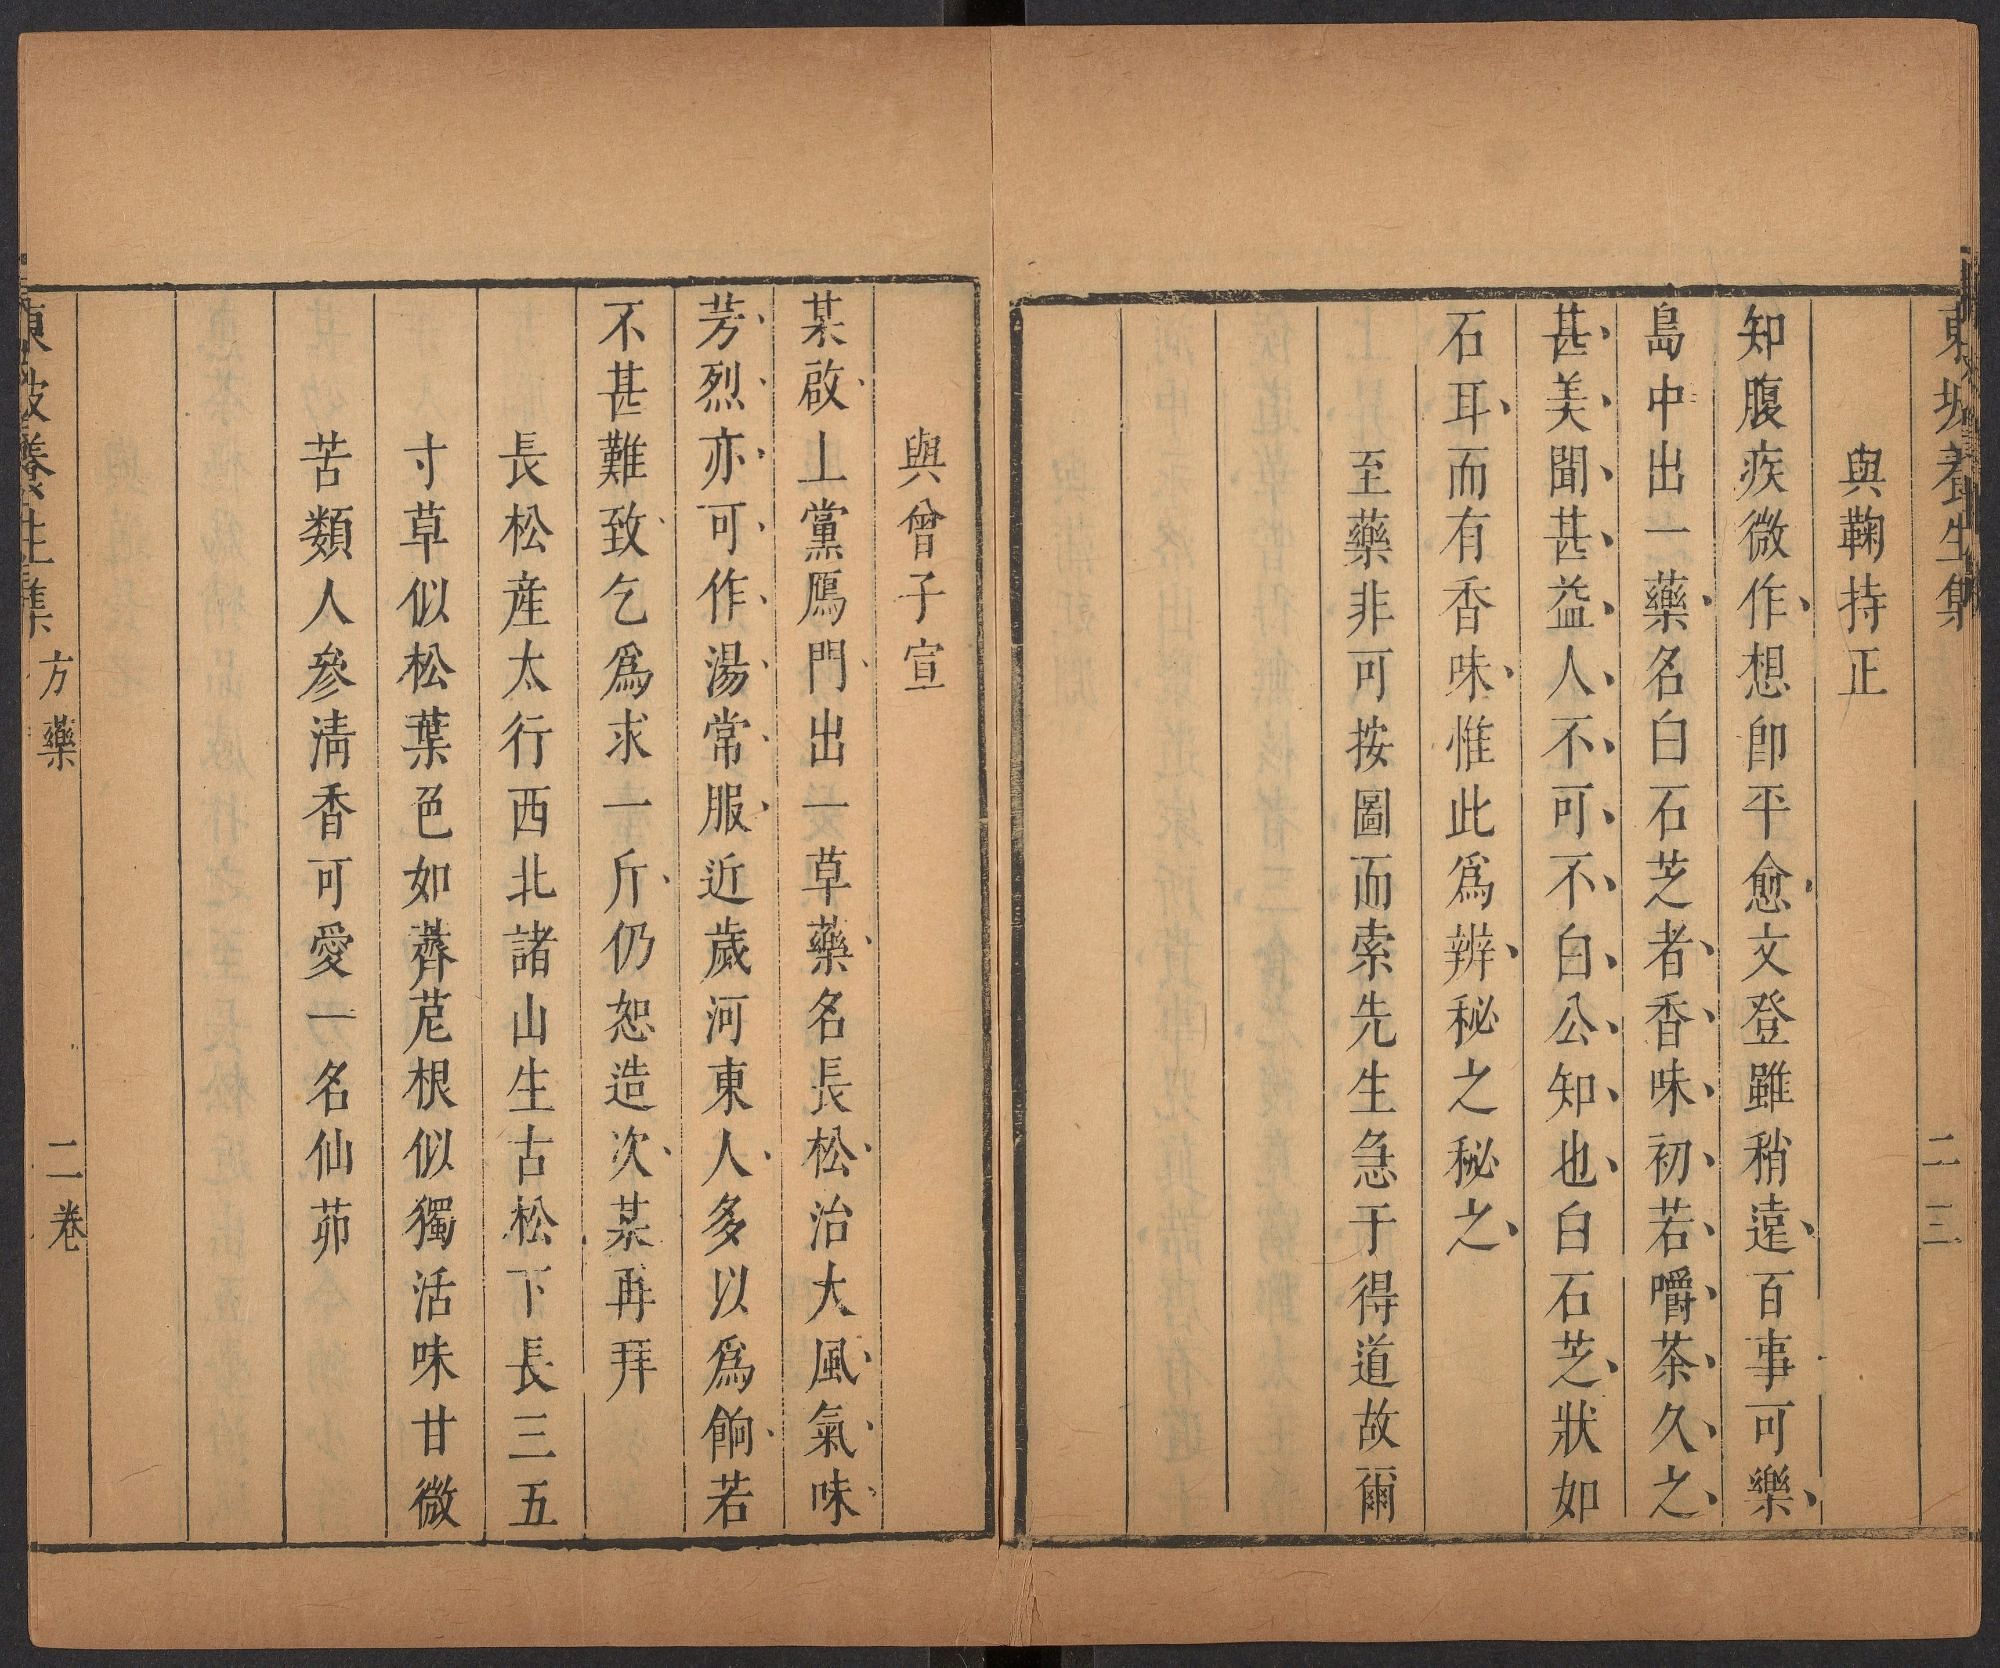 東坡養生集
二三
與鞠持正
知腹疾微作想卽平愈文登雖稍遠百事可樂
島中出一藥名白石芝者香味初若嚼茶久之
甚美聞甚益人不可不白公知也白石芝狀如
石耳而有香味惟此爲辨秘之秘之
至藥非可按圖而索先生急于得道故爾
與曾子宣
某啟上黨鴈門出一草藥名長松治大風氣味
芳烈亦可作湯常服近歲河東人多以爲餉若
不甚難致乞爲求一斤仍恕造次某再拜
長松產太行西北諸山生古松下長三五
寸草似松葉色如薺苨根似獨活味甘微
苦類人參淸香可愛一名仙茆
東坡養生集
方藥
二卷